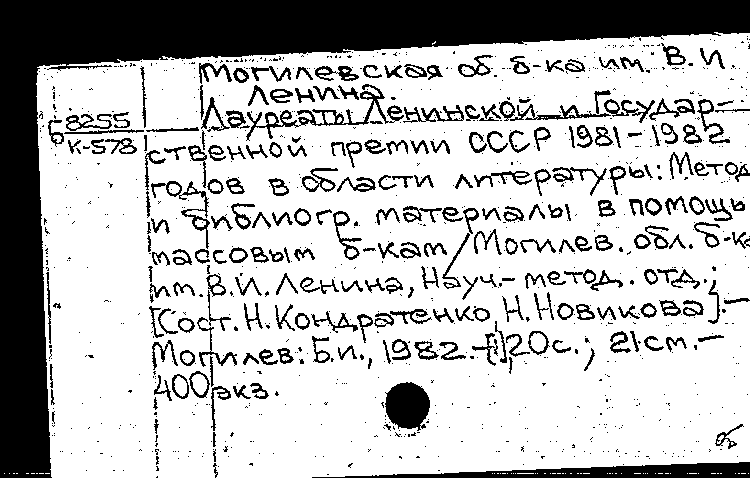 Могилевская об. б-ка им. В. И.
Ленина.
Лауреаты Ленинской и Государ-
Б 8255
К-578
ственной премии СССР 1981-1982
годов в области литературы: Метод.
и библиогр. материалы в помощь
массовым б-кам / Могилев. обл. б-ка
им. В. И. Ленина, Науч.-метод. отд.;
[Сост. Н. Кондратенко, Н. Новикова].-
Могилев: Б.и., 1982.-[i]20с.; 21см.-
400 экз.